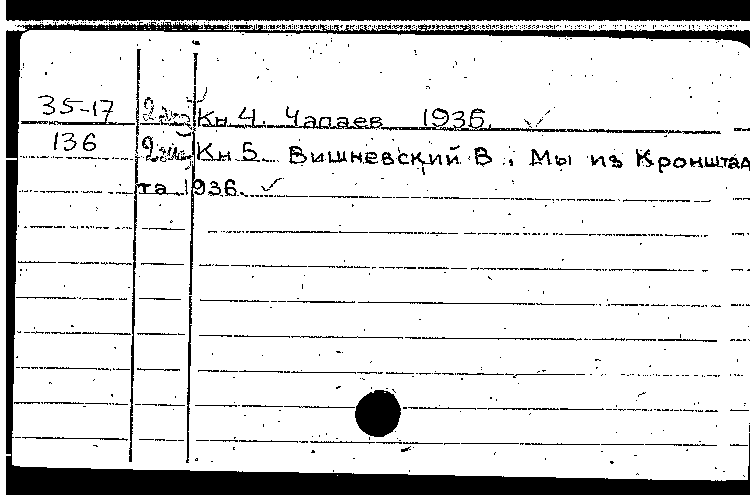 35-17 2 экз Кн 4. Чапаев 1936.
136 2 экз Кн 5. Вишневский В. Мы из Кронштад
та 1936.